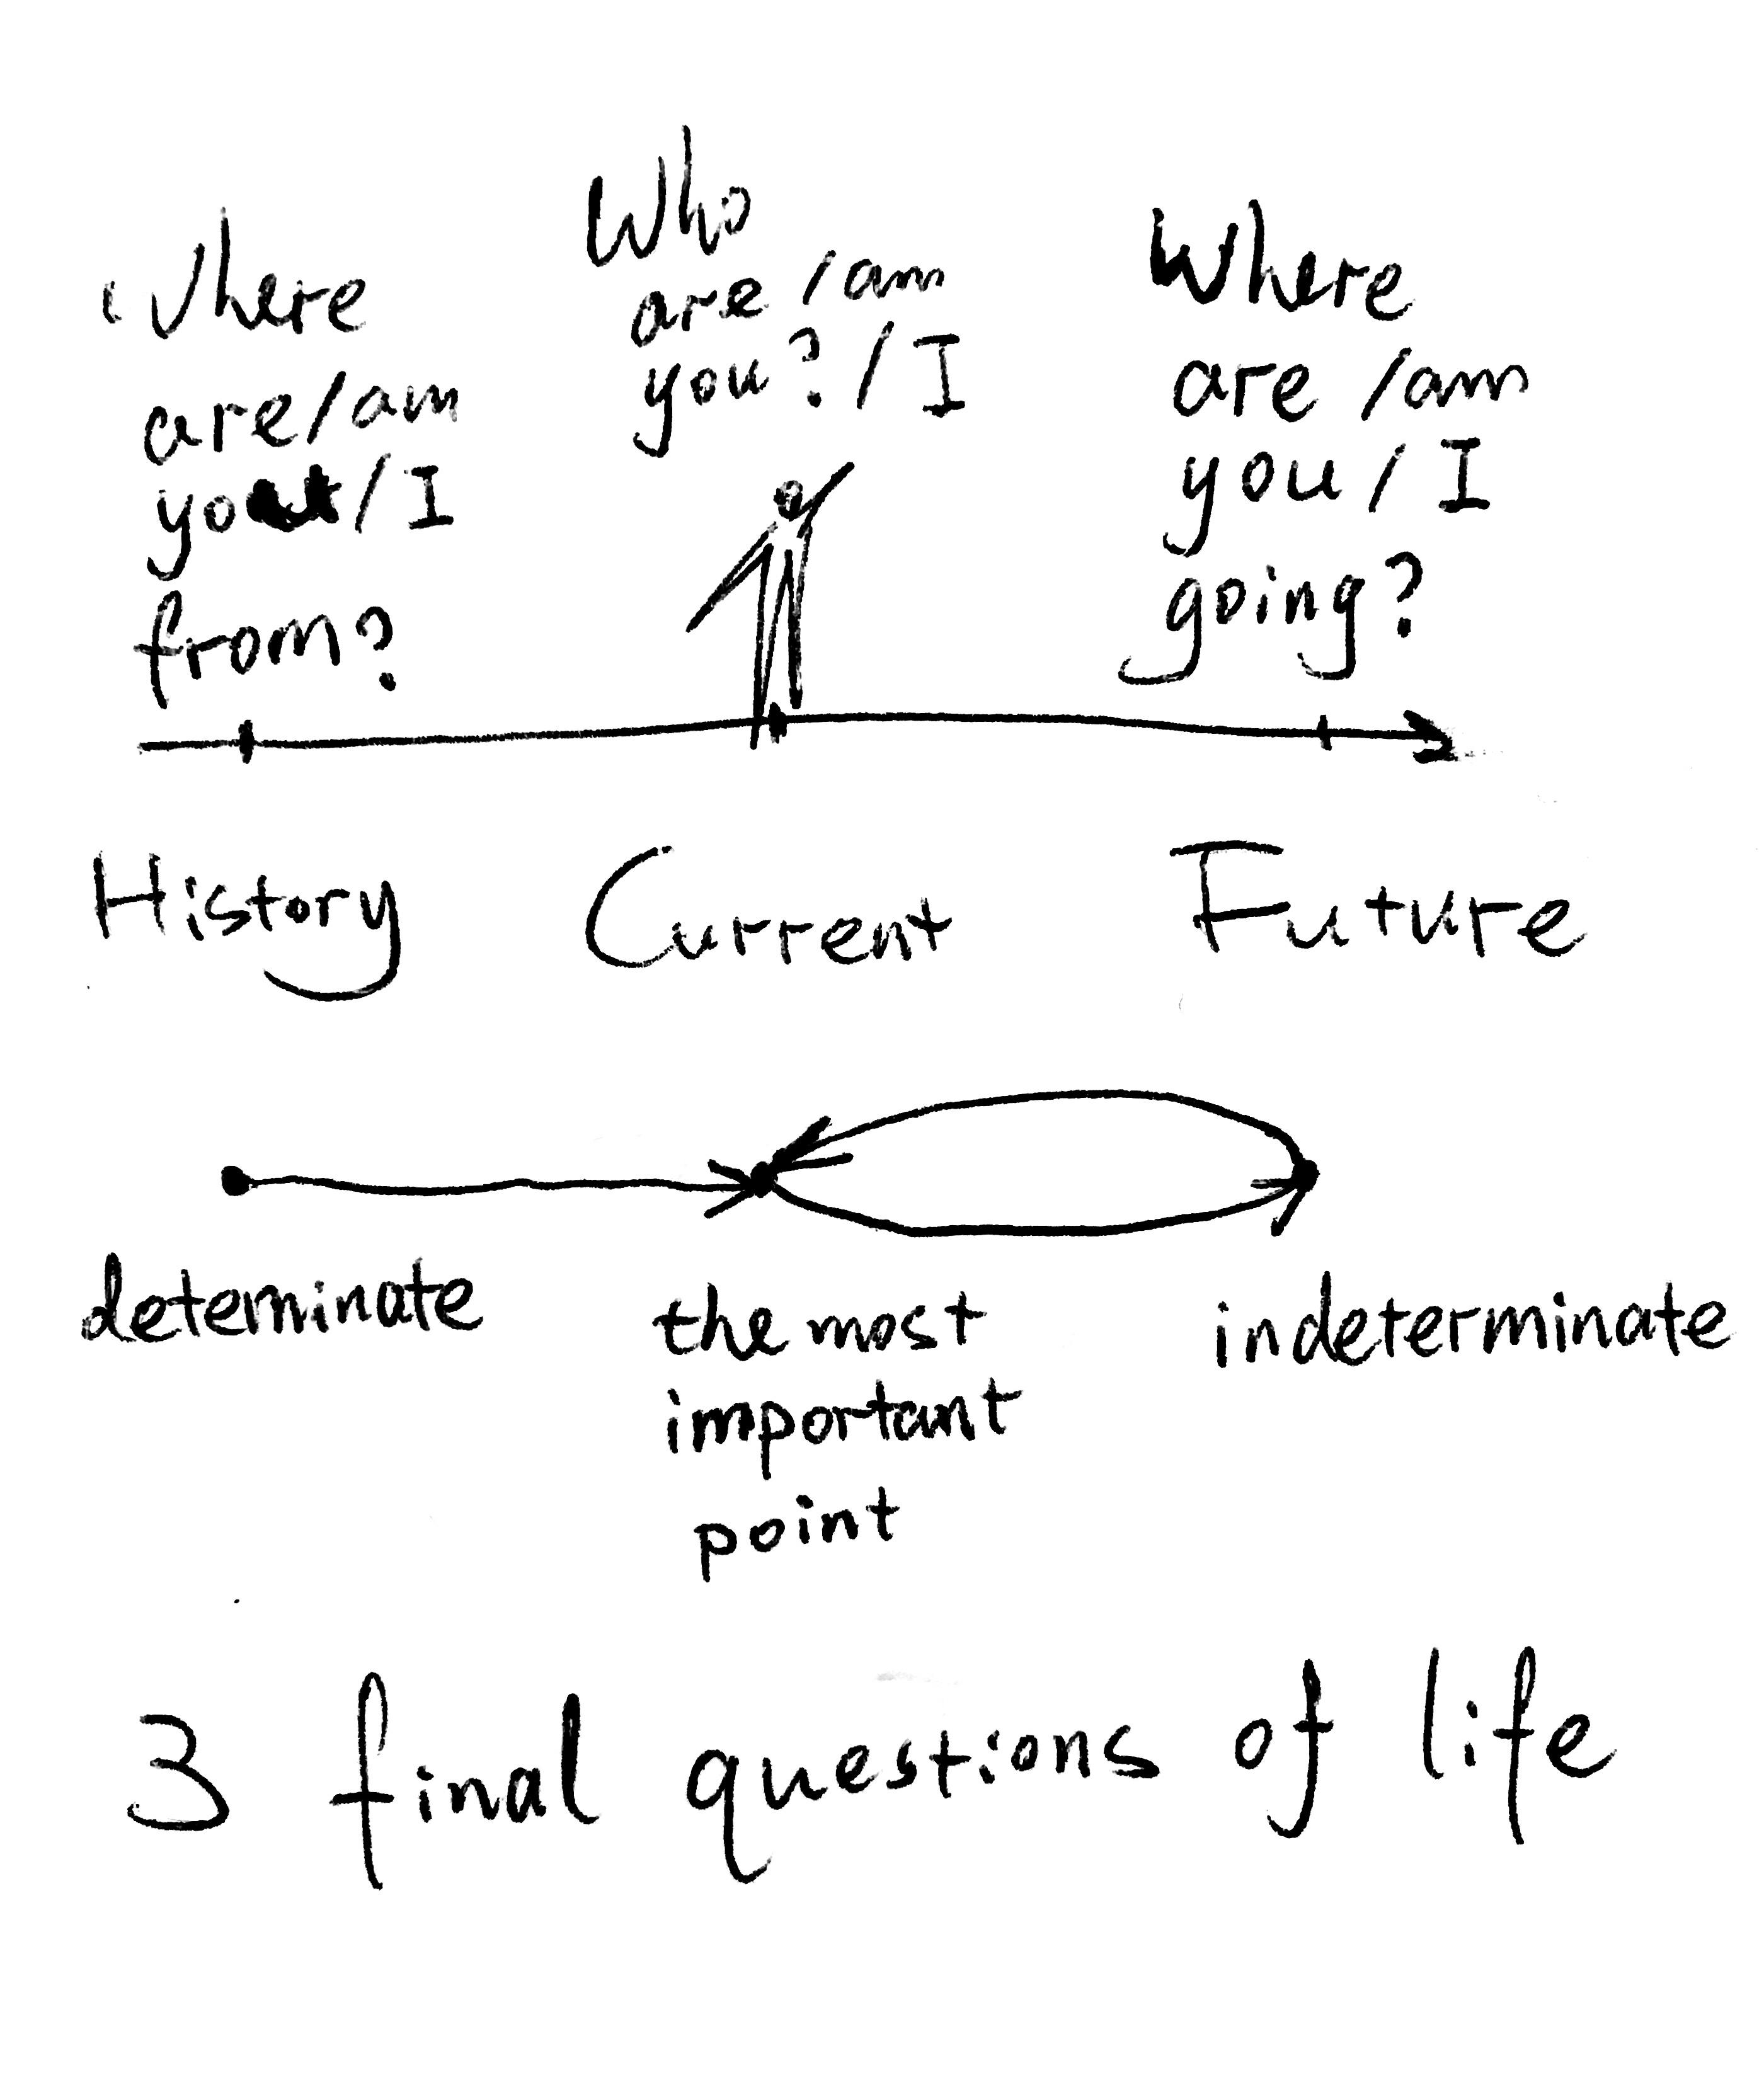 Where
are/am
you/I
from?
Who
are/am
you?/I
Where
are/am
you/I
going?
History Current Future
determinate
the most
important
point
indeterminate
3 final questions of life